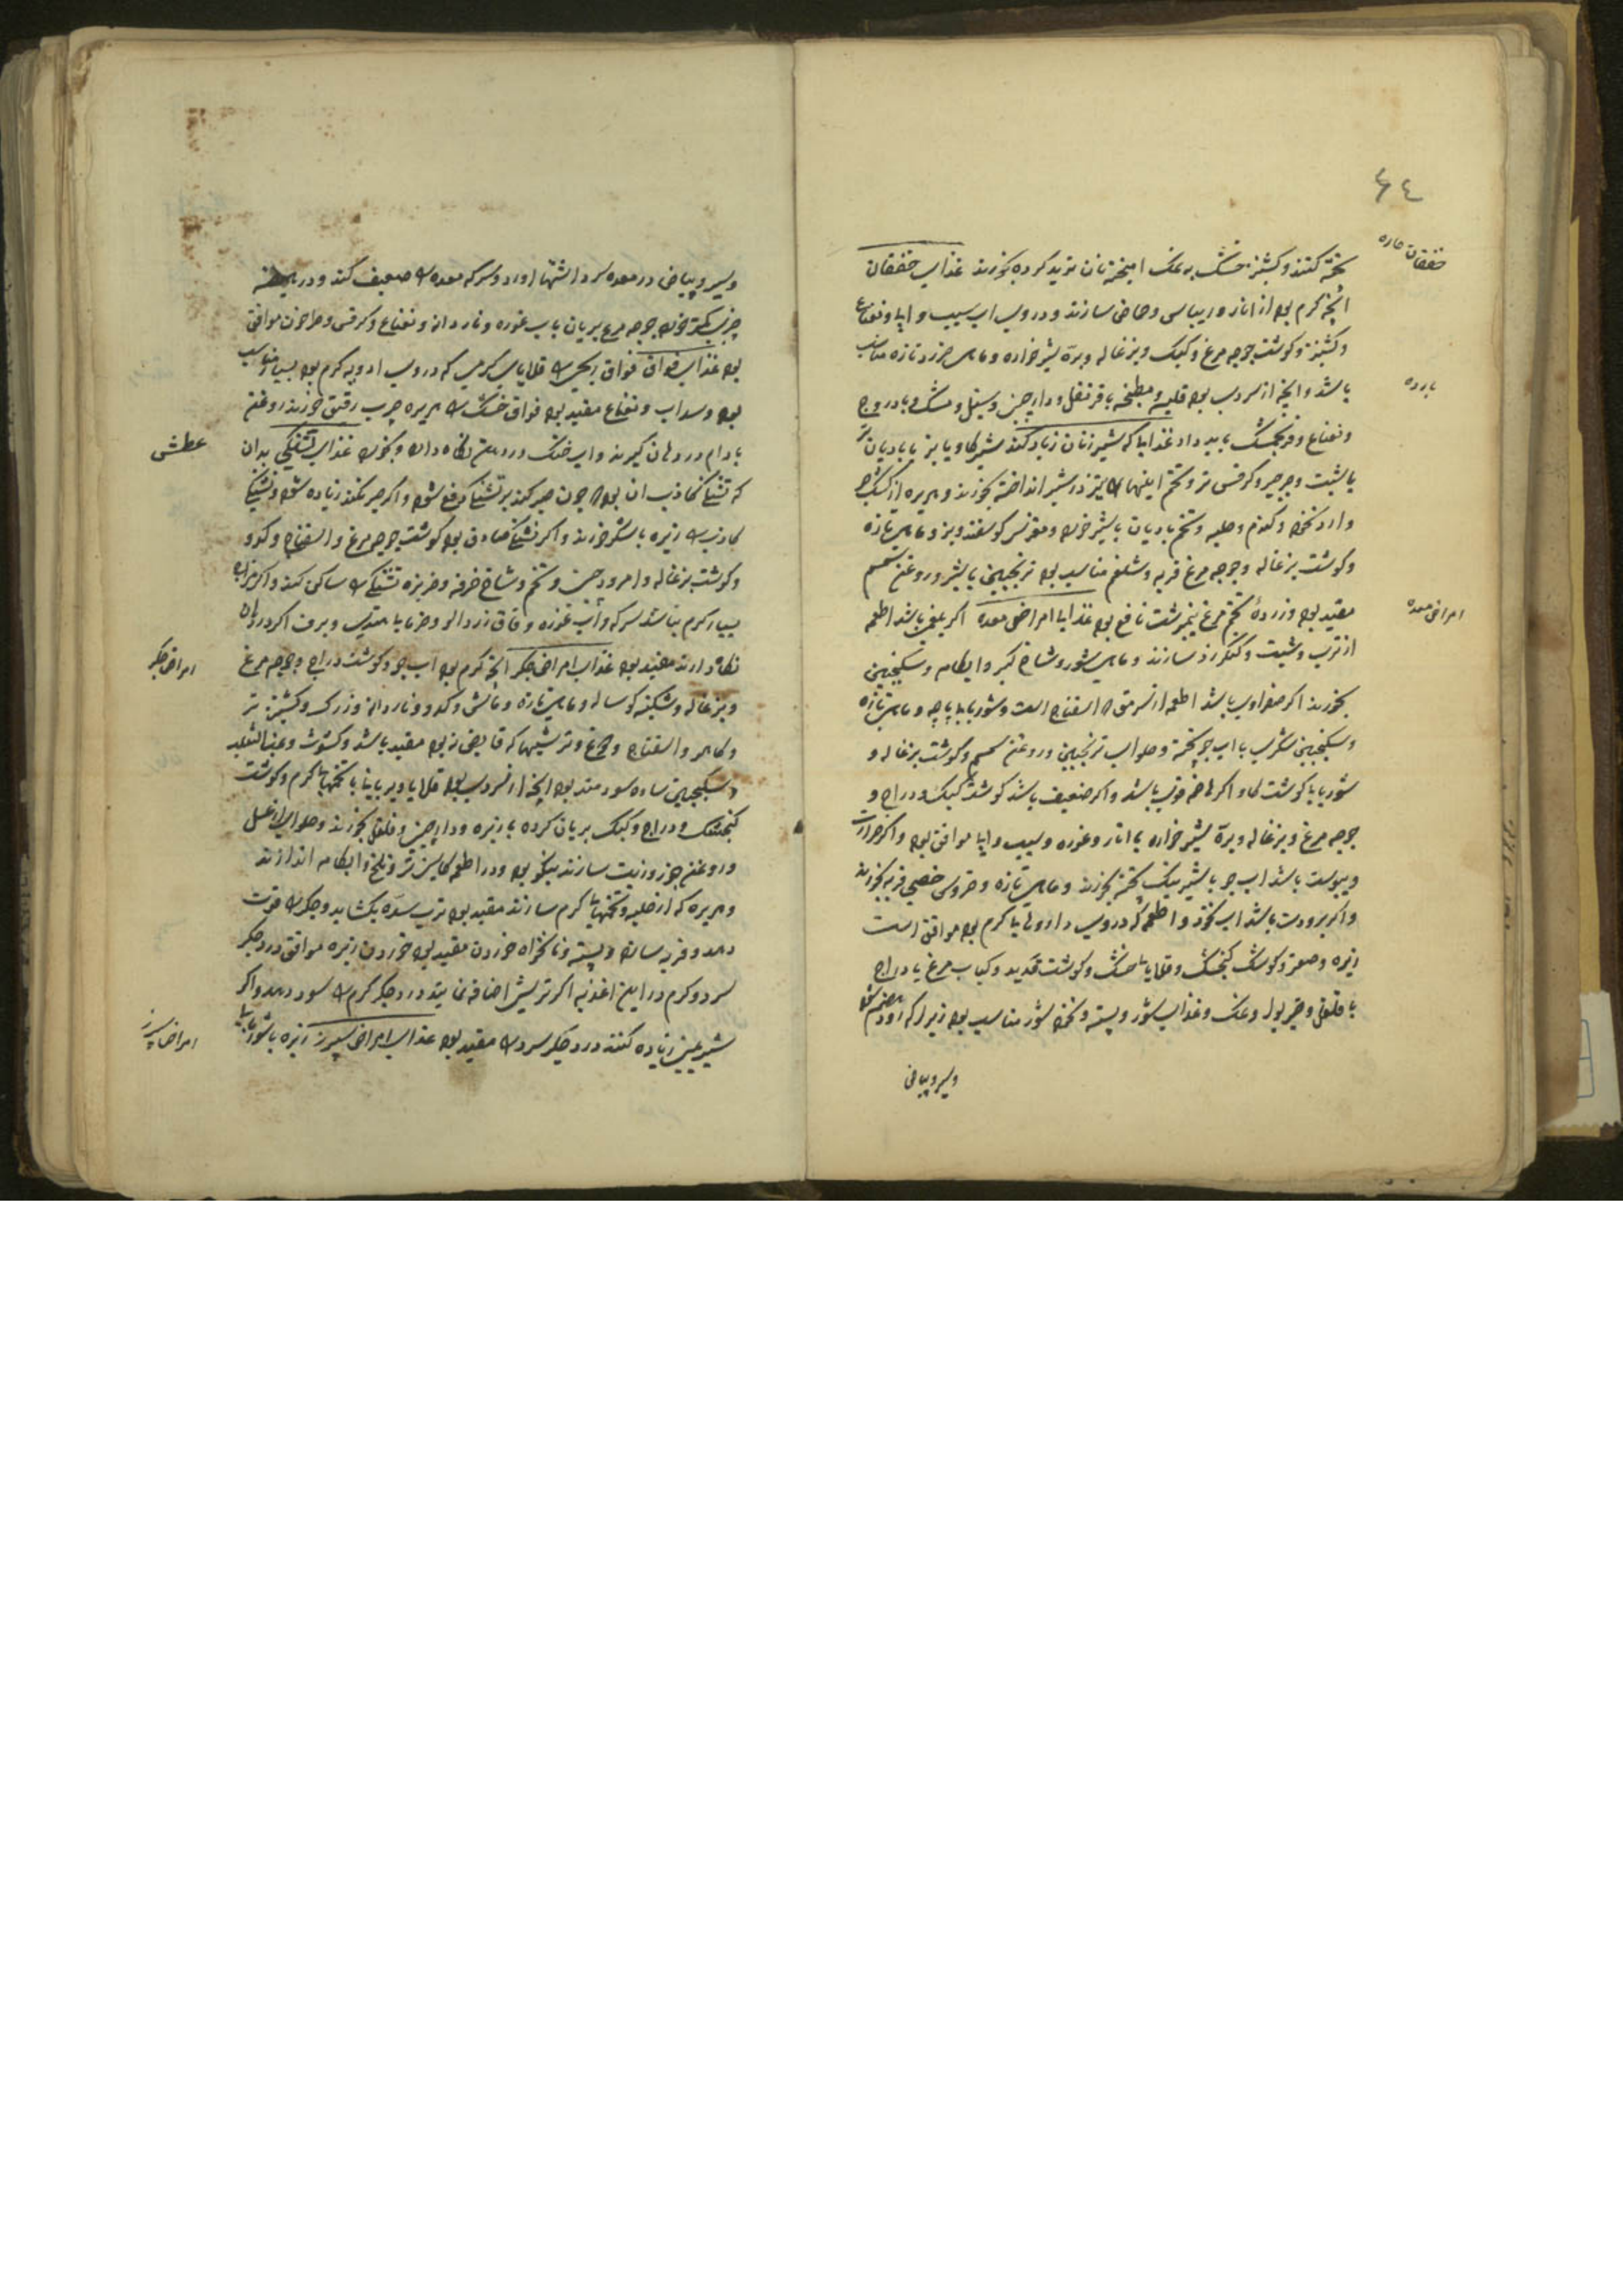 ۶۴
خفقان حاره
پخته کنند و کشنیز خشک به نمک امیخته نان ترید کرده بخورند غذای خفقان
انچه گرم بود از انار و ریباس و حماض سازند و در وی اب سیب و ابیا و نعناع
و کشنیز و گوشت جوجه مرغ و کبک و بزغاله و بره شیر خواره و ماهی خرد تازه مناسب
بارده
باشد و انچه از سردی بود قلیه و مطنجه با قرنفل و دارچین و سنبل و مشک و بادروج
و نعناع و فرنجمشک باید داد غذاییا که شیر زنان زیاد کند شیر گاو یا بز با بادیان تر
یا شبت و جرجیر و کرفس تر و تخم اینها نیز در شیر انداخته بخورند و هریره از کشک جو
وارد نخود و گندم و حلبه و تخم بادیان با شیر خورند و مغز سر گوسفند و بز و ماهی تازه
و گوشت بزغاله و جوجه مرغ فربه و شلغم مناسب بود ترنجبین با شیر و روغن سمسم
امراض معده
مفید بود و زرده تخم مرغ نیمبرشت نافع بود غذایا امراض معده اگر بلغمی باشد اطعمه
از ترب و شبت و کنکر زد سازند و ماهی شور و شاخ کبر و ابکامه و سکنجبین
بخورند اگر صفراوی باشد اطعمه از سرمق و اسفناج است و شوربا با پاچه و ماهی تازه
و سکنجبین شکری با اب جو پخته و حلوای ترنجبین و روغن سمسم و گوشت بزغاله و
شوربا با گوشت گاو اگر هاضمه قوی باشد و اگر ضعیف باشد گوشت کبک و دراج و
جوجه مرغ و بزغاله و بره شیر خواره با انار و غوره و سیب و ابیا موافق بود و اگر حرارت
و یبوست باشد اب جو با شیر نیک پخته بخورند و ماهی تازه و خروس خصی فربه بخورند
و اگر برودت باشد اب نخود و اطعمه که در وی داروها یا گرم بود موافق است
زیره و صعتر و گوشت گنجشک و قلایا یا خشک و گوشت قدید و کباب مرغ یا دراج
با فلفل و خیر بوا و نمک و غذای شور و پسته و نخود شور مناسب بود زیرا که
وسیر و پیاض
وسیر و پیاض در معده سرد اشتها اورد و سرکه معده را ضعیف کند و در
جوجه مرغ بریان با اب غوره و ناردان و نعناع و کرفس و طرخون موافق
بود غذای فواق فواق ریحی را قلایا گرمی که در وی ادویه گرم بود
بود و سداب و نعناع مفید بود فواق خشک را هریره چرب رقیق خورند روغن
عطش
بادام در دهان گیرند و اب خنک در دهن نگاه دارند و بخورند غذای تشنگی بدان
که تشنگی کاذب ان بود که چون صبر کند بر تشنگی دفع شود و اگر صبر نکند زیاده شود و تشنگی
کاذب را زیره با شکر خورند و اگر تشنگی صادق بود گوشت جوجه مرغ و اسفناج و کدو
و گوشت بزغاله و امرود چین و تخم و شاخ خرفه و خربزه تشنگی را ساکن کند و اگر
بسیار گرم نباشد سرکه و اب غوره و قاق زردالو و خرمایا هندی و برف اگر در دهان
امراض جگر
نگاه دارند مفید بود غذای امراض جگر انچه گرم بود اب جو و گوشت دراج و جوجه مرغ
و بزغاله و شکنبه گوساله و ماهی تازه و ماش و کدو و ناردان و زرک و کشنیز تر
و کاهو و اسفناج و ترشیها که قابض نبود مفید باشد و کشوث و عنب الثعلب
و سکنجبین ساده سودمند بود انچه از سردی بود قلایا و بریانیا با تخمها گرم و گوشت
گنجشک و دراج و کبک بریان کرده با زیره و دارچین و فلفل بخورند و حلوای از عسل
و روغن جوز و زیت سازند نیکو بود و در اطعمه کشنیز تر و تلخ و ابکامه اندازند
و هریره که از حلبه و تخمهای گرم سازند مفید بود ترب سده بگشاید و جگر را قوت
دهد و فربه سازد و پسته و نانخواه خوردن مفید بود خوردن زیره موافق درد جگر
سرد و گرم در این اغذیه اگر ترشی اضافه نمایند درد جگر گرم را سود دهد و اگر
امراض سپرز
شیرینی زیاده کنند درد جگر سرد را مفید بود غذای امراض سپرز زیره با شوربا